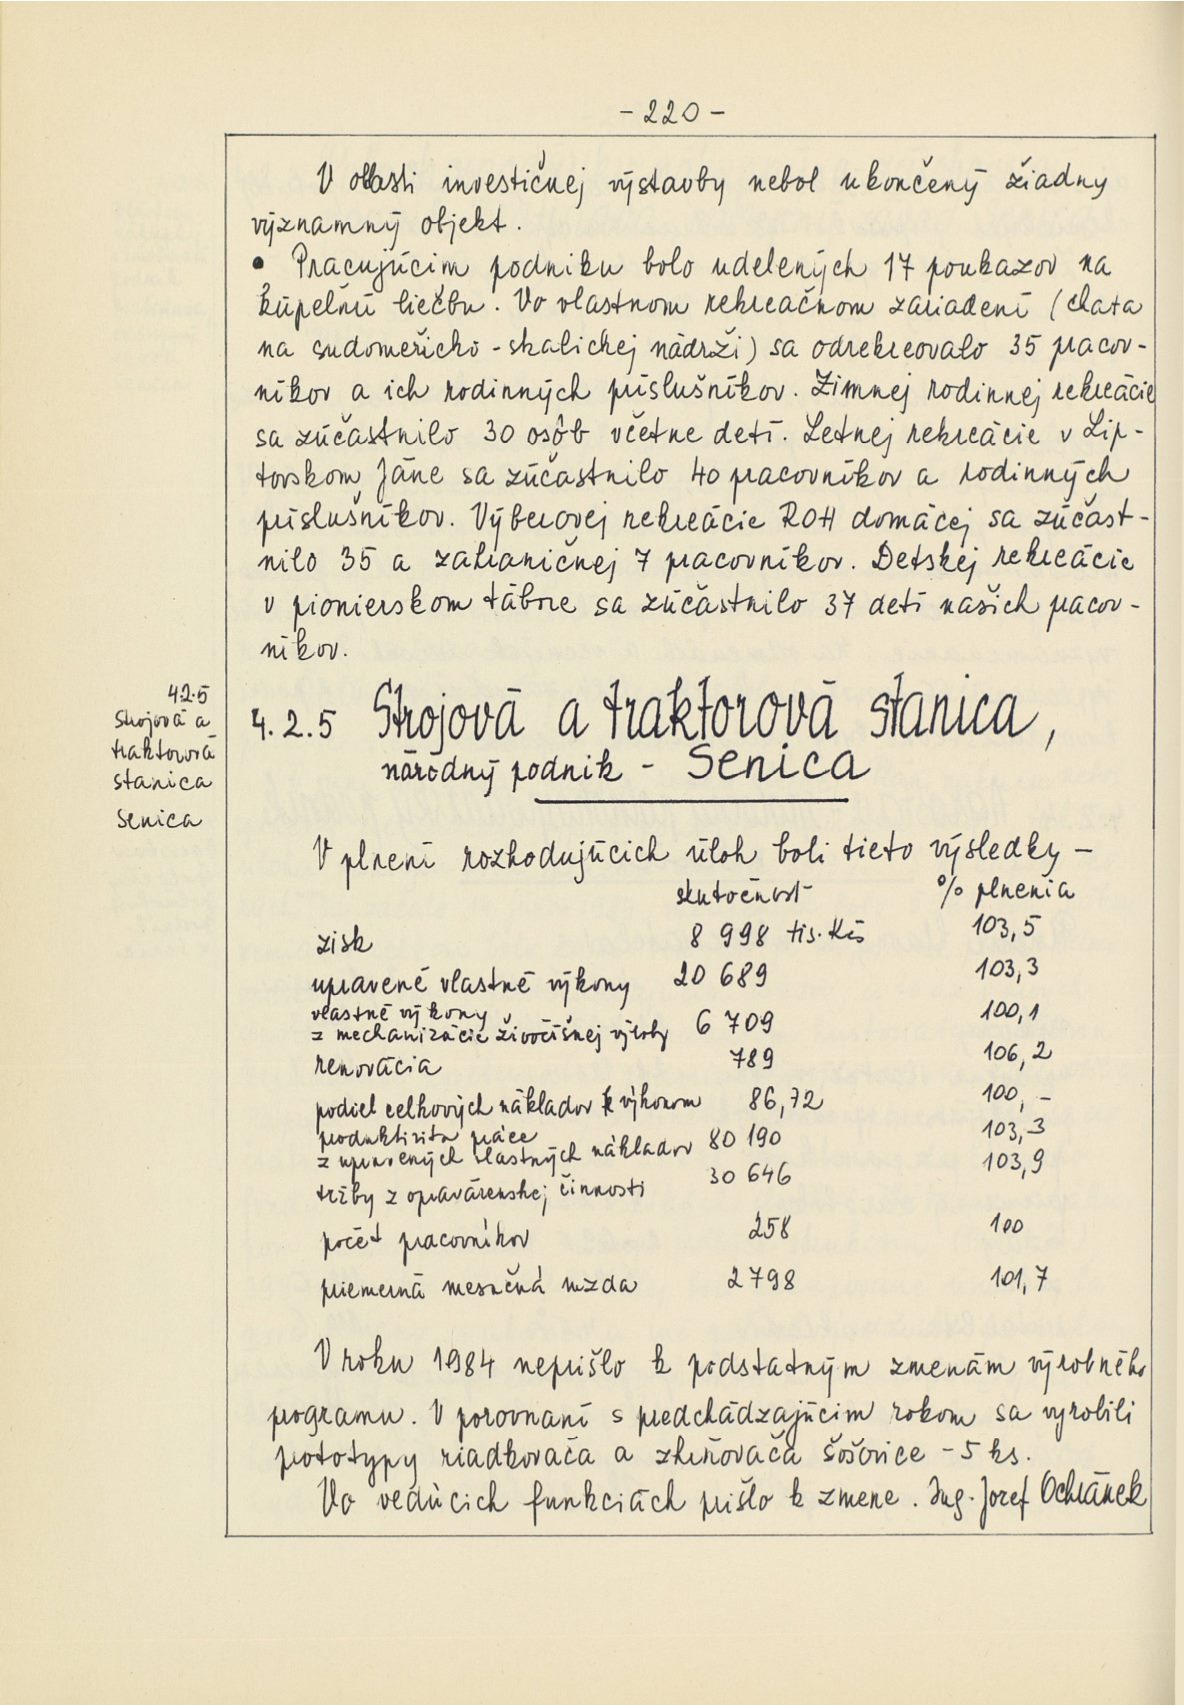 - 220 -
V oblasti investičnej výstavby nebol ukončený žiadny
významný objekt.
• Pracujúcim podniku bolo udelených 17 poukazov na
kúpeľnú liečbu. Vo vlastnom rekreačnom zariadení (chata
na sudoměřicko-skalickej nádrži) sa odrekreovalo 35 pracov-
níkov a ich rodinných príslušníkov. Zimnej rodinnej rekreácie
sa zúčastnilo 30 osôb včetne detí. Letnej rekreácie v Lip-
tovskom Jáne sa zúčastnilo 40 pracovníkov a rodinných
príslušníkov. Výberovej rekreácie ROH domácej sa zúčast-
nilo 35 a zahraničnej 7 pracovníkov. Detskej rekreácie
v pionierskom tábore sa zúčastnilo 37 detí našich pracov-
níkov.
4.2.5
Strojová a
traktorová
stanica
Senica
4.2.5 Strojová a traktorová stanica,
národný podnik - Senica
V plnení rozhodujúcich úloh boli tieto výsledky -
skutočnosť % plnenia
zisk 8 998 tis. Kčs 103,5
upravené vlastné výkony 20 689 103,3
vlastné výkony
z mechanizácie živočíšnej výroby 6 709 100,1
renovácia 789 106,2
podiel celkových nákladov k výkonom 86,72 100,-
produktivita práce
z upravených vlastných nákladov 80 190 103,3
tržby z opravárenskej činnosti 30 646 103,9
počet pracovníkov 258 100
priemerná mesačná mzda 2 798 101,7
V roku 1984 neprišlo k podstatným zmenám výrobného
programu. V porovnaní s predchádzajúcim rokom sa vyrobili
prototypy riadkovača a zhrňovača šošovice - 5 ks.
Vo vedúcich funkciách prišlo k zmene. Ing. Jozef Ochránek